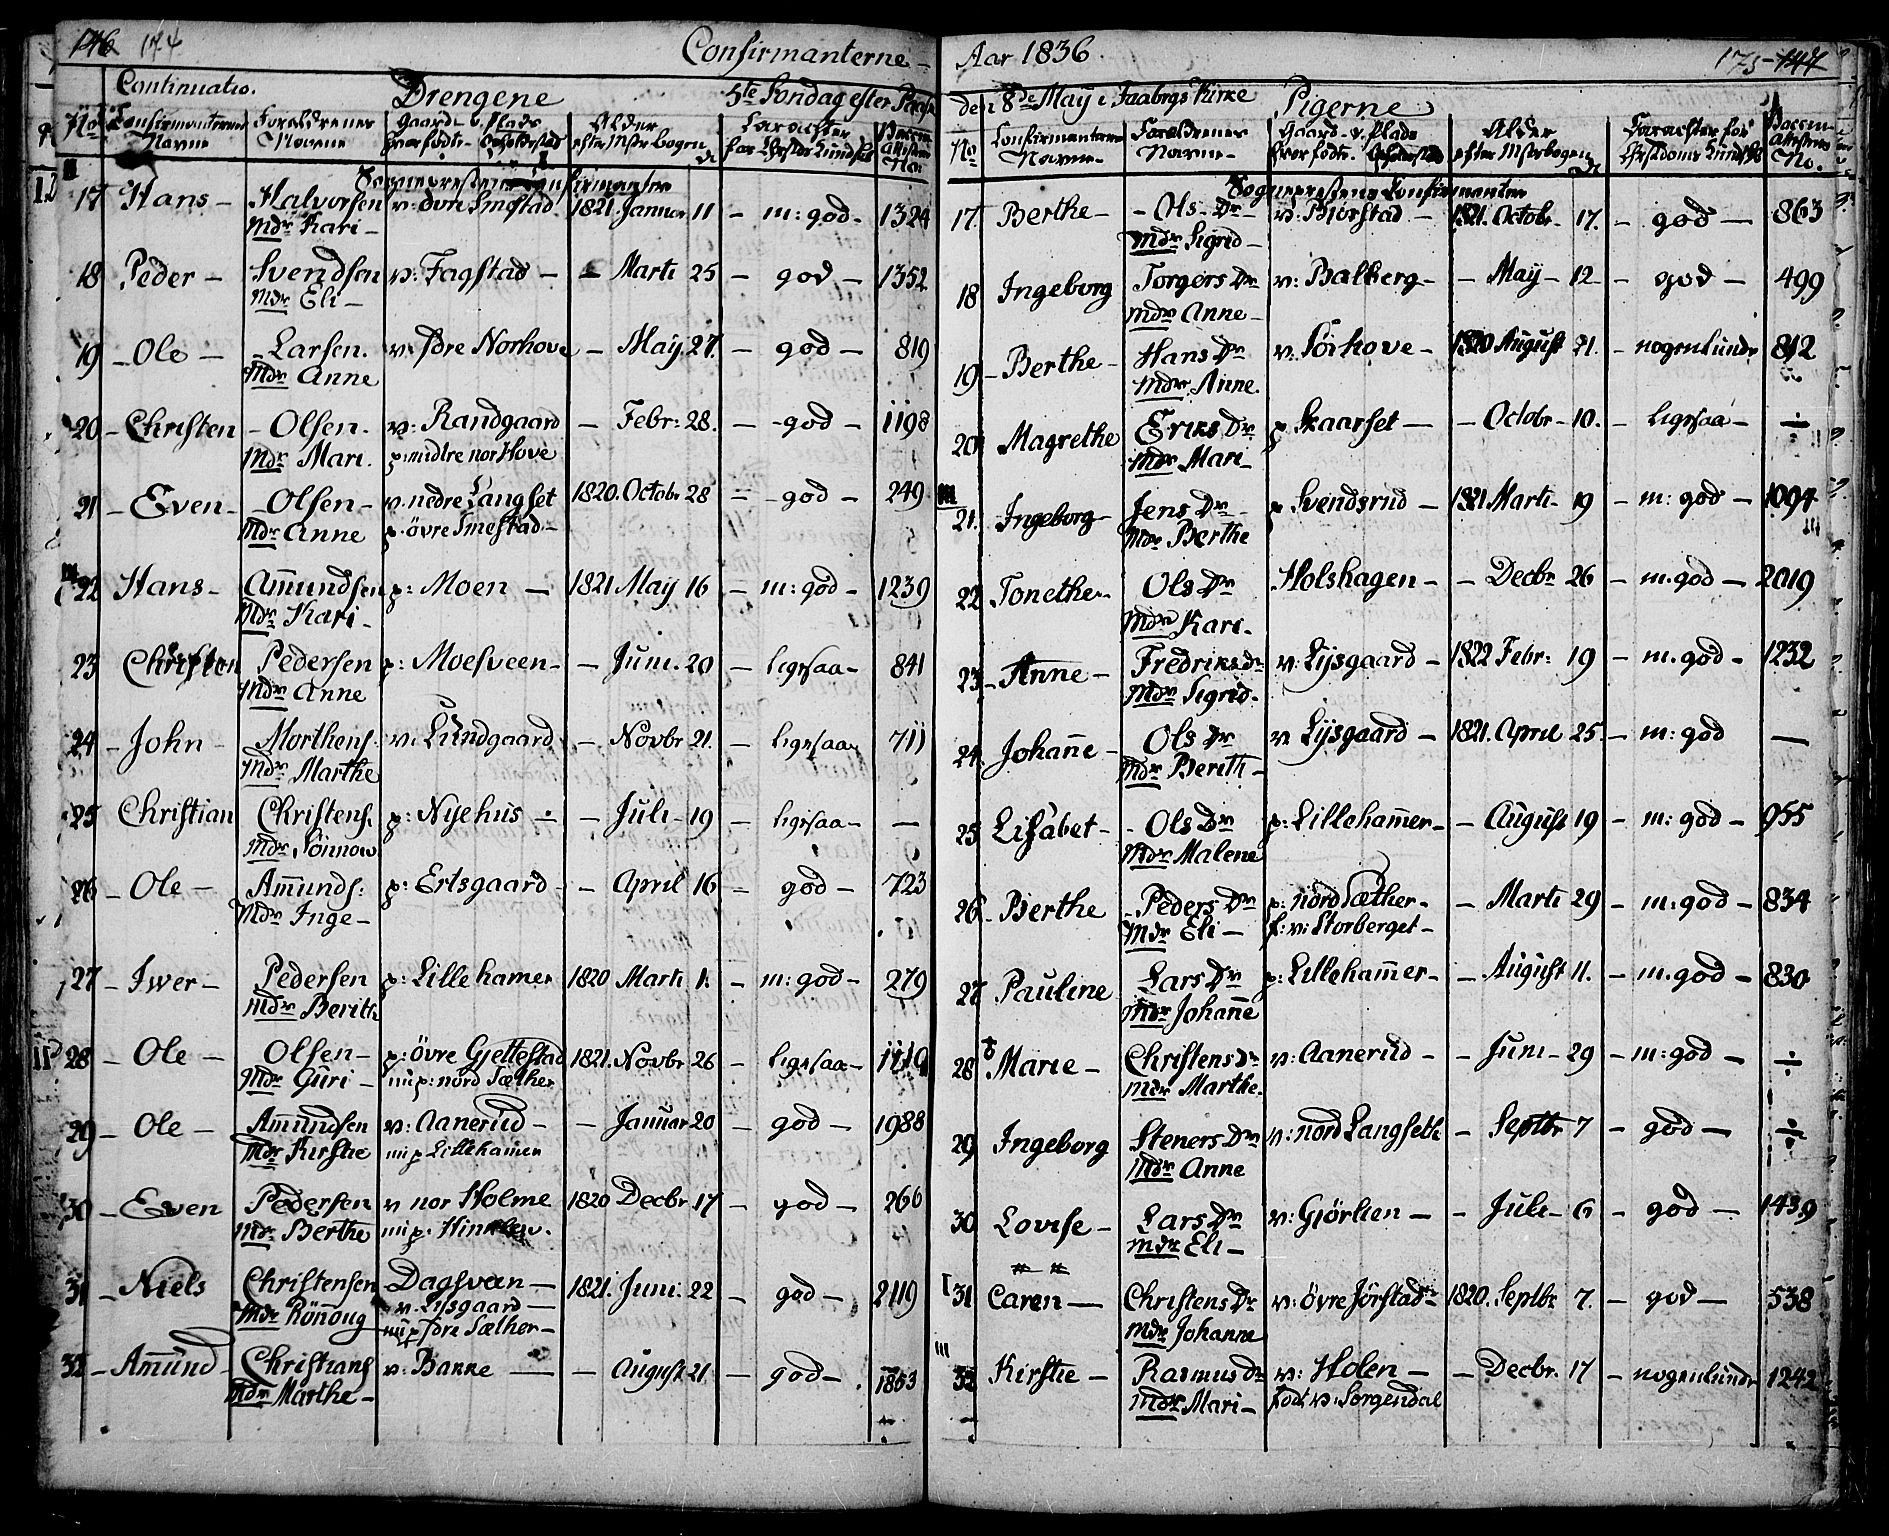 146 174 Confirmanterne – Aar 1836. 175 147
Continuatio. Drengene 5te Søndag efter Paaske
No Confirmanternes Navne Forældrenes Navne Gaard v. Plads hvor fødte – Opholdsted Alder efter Msterbogen Caracter for Chrstds Kundsk Vaccin Attestens No:
Sogneprestens Confirmanter
17 Hans – Halvorsen v: övre Smestad 1821 Januar 11 – m: god – 1324
Mdr Kari –
18 Peder – Svendsen v: Fagstad – – Marti 25 – god – 1352
Mdr Eli –
19 – Ole – – Larsen. v: sdre Norhove – May 27 – god – 819
Mdr Anne
20 – Christen – Olsen. v: Randgaard – Febr: 28. – god – 1198
Mdr Mari. p: midtre nor Hove
21 – Even – – Olsen – v. nedre Langset 1820. Octobr 28 – god – 249
Mdr Anne p. övre Smestad –
22 Hans – Amundsen p: Moen – 1821 May 16 – m: god – 1239
Mdr Kari –
23 Christen Pedersen p: Moesveen – – Juni. 20 – ligesaa – 841
Mdr Anne
24 – John – Morthens. v: Lundgaard – Novbr 21. – ligesaa 711
Mdr Marthe
25 Christian Christens. p: Nyehus – – Juli – 19 – ligesaa – –
Mdr Sönnow
26 – Ole – Amunds: p: Ertsgaard – – April 16 – god – 723
Mdr Inge –
27 – Iwer – Pedersen p: Lillehamer 1820 Marti 1. – m: god – 279
Mdr Berith
28 – Ole – Olsen – p: övre Gjettestad 1821. Novbr 26 – ligesaa – 1119
Mdr Guri – nu p: nord Sæther
29 – Ole – Amundsen v: Aanerud – – Januar 20 – god – 1988
Mdr Kirstie nu p Lillehamer
30 – Even Pedersen v nor Holme 1820 Decbr 17 – god – 266
Mdr Berthe nu p.
31 – Niels Christensen Dagsveen – 1821. Juni. 22 – god – 2119
Mdr Rönnoug v. Lysgaard –
nu p sdre Sæther –
32 – Amund – Christians v: Banke – – August 21. – god – 1853
Mdr Marthe –
den 8de May i Faabergs Kirke Pigerne
No Confirmanternes Navne – Forældrenes Navne – Gaard – v. Plads hvor fødte. Opholdsted Alder efter Msterbogen Caracter for Chrstdoms Kundsk Vaccin – Attestens No.
Sogneprestens Confirmanter
17. Berthe – – Ols Dr – v: Bjørstad – 1821. Octobr – 17. – god – 863
Mdr Sigrid –
18 Ingeborg Torgers Dr v: Balberg – – May – 12 – god – 499
Mdr Anne –
19 – Berthe – Hans Dr v: Sörhove – 1820 August 21. – nogenlunde 812
Mdr Anne.
20 Magrethe Eriks Dr p Skaarset – – Octobr – 10. – ligesaa – ÷
Mdr Mari –
21. Ingeborg – Jens Dr p Svendsrud – 1821. Marti – 19 – m: god – 1094
Mdr Berthe
22 Tonethe – Ols Dr Holshagen – – Decbr 26 – m. god – 2019
Mdr Kari.
23 – Anne – Fredriks Dr v: Lysgaard – 1822 Febr: 19 – m. god – 1232
Mdr Sigrid.
24. Johanne – Ols Dr v: Lysgaard – 1821. April 25. – m: god –
Mdr Berith –
25 Lisabet – – Ols Dr p: Lillehammer – – August 19 – m: god – 955
Mdr Malene
26 – Berthe – Peders Dr p: nord Sæther – – Marti 29 – m: god – 834
Mdr Eli – f: v: Storberget –
27 Pauline Lars Dr p: Lillehammer – – August 11. – m. god – 830
Mdr Johanne
28 Marie – Christens Dr v: Aanerud – – Juni – 29 – m: god – ÷
Mdr Marthe.
29 Ingeborg Steners Dr v: nord Langseth – Septbr 7 – god – ÷
Mdr Anne
30 Lovise – Lars Dr v: Gjörlien – – Juli – 6 – god – 1439
Mdr Eli –
31 Caren – Christens Dr v: övre Jörstad – 1820. Septbr 7. – god – 538
Mdr Johanne
32 Kirstie – Rasmus Dr v: Holen – – Decbr. 17 – nogenlunde 1242
Mdr Mari – født v: Sorgendal